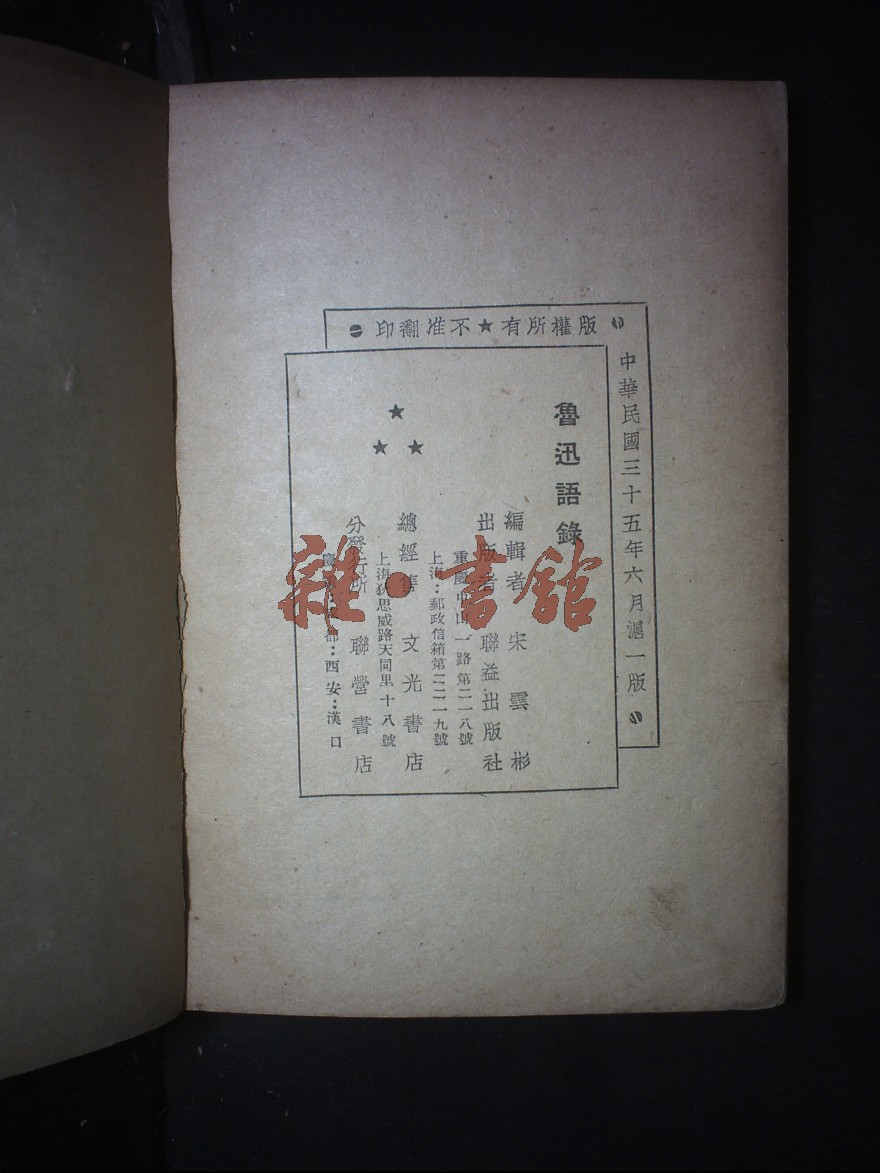 版權所有★不准翻印
中華民國三十五年六月滬一版
魯迅語錄
編輯者 宋雲彬
出版者 聯益出版社
重慶中山一路第二一八號
上海：郵政信箱第二二一九號
總經售 文光書店
上海狄思威路天同里十八號
分發行所 聯營書店
重慶：成都：西安：漢口
雜·書館